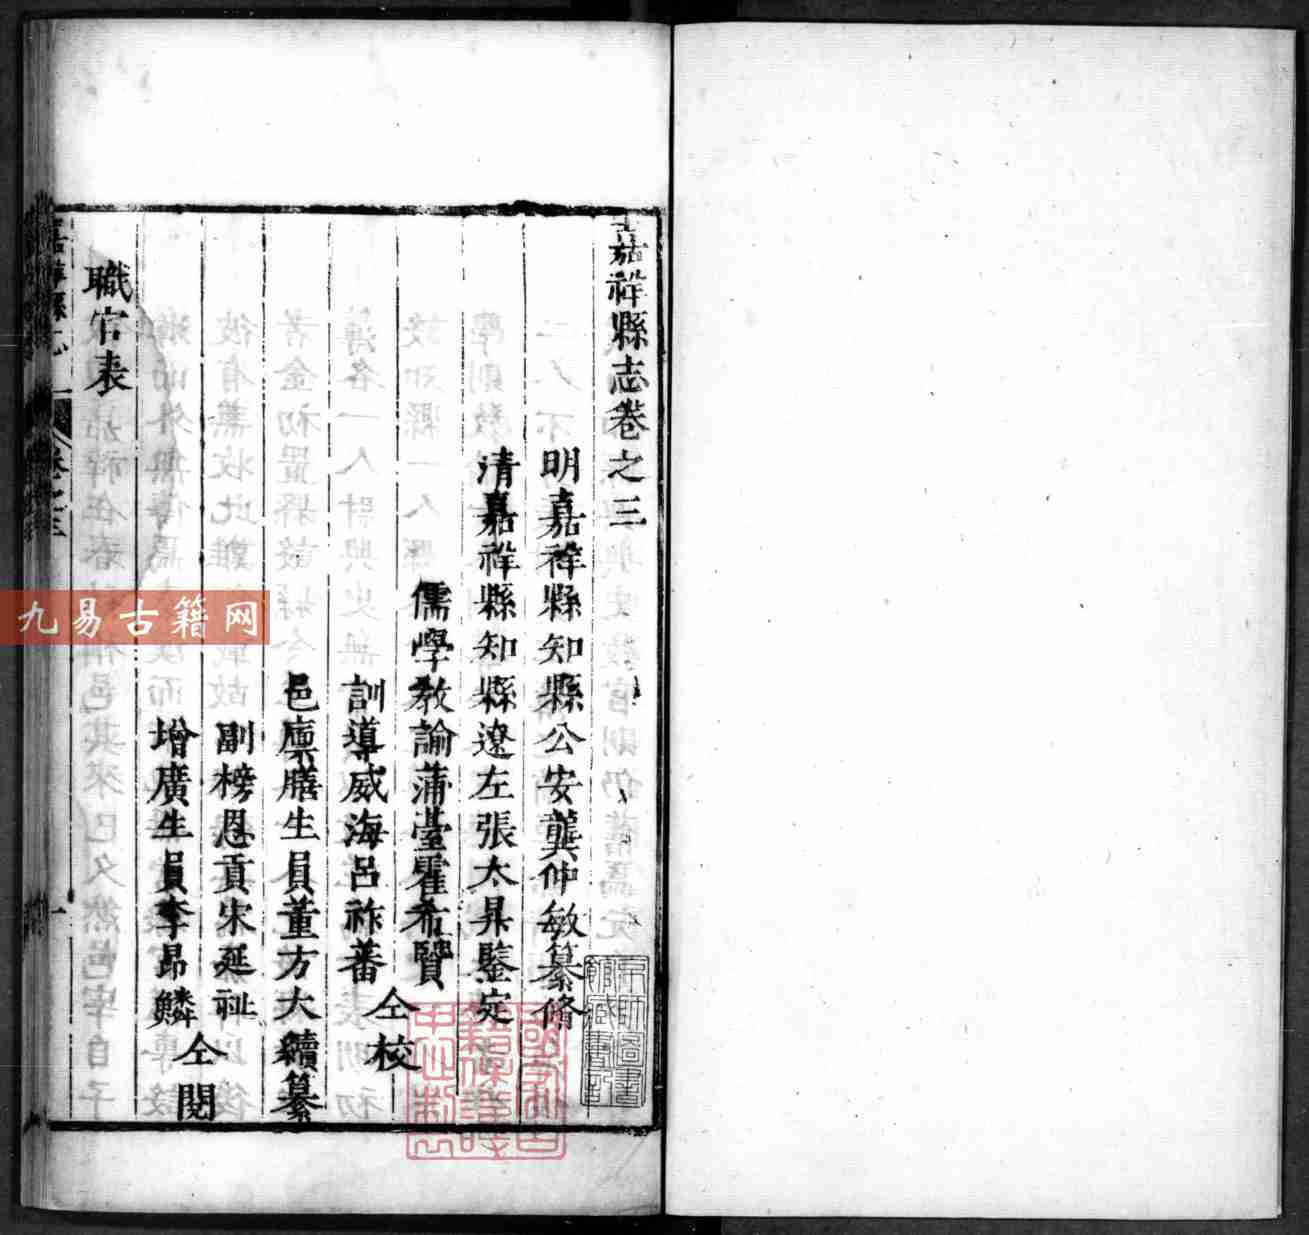 嘉祥縣志卷之三
明嘉祥縣知縣公安龔仲敏纂脩
清嘉祥縣知縣遼左張太昇鑒定
儒學教諭蒲臺霍希賢
訓導威海呂祚蕃
仝校
邑廩膳生員董方大續纂
副榜恩貢宋延祉
增廣生員李昂鱗
仝閱
職官表
嘉祥縣志
卷之三
一
九易古籍网
京師圖書
館藏書記